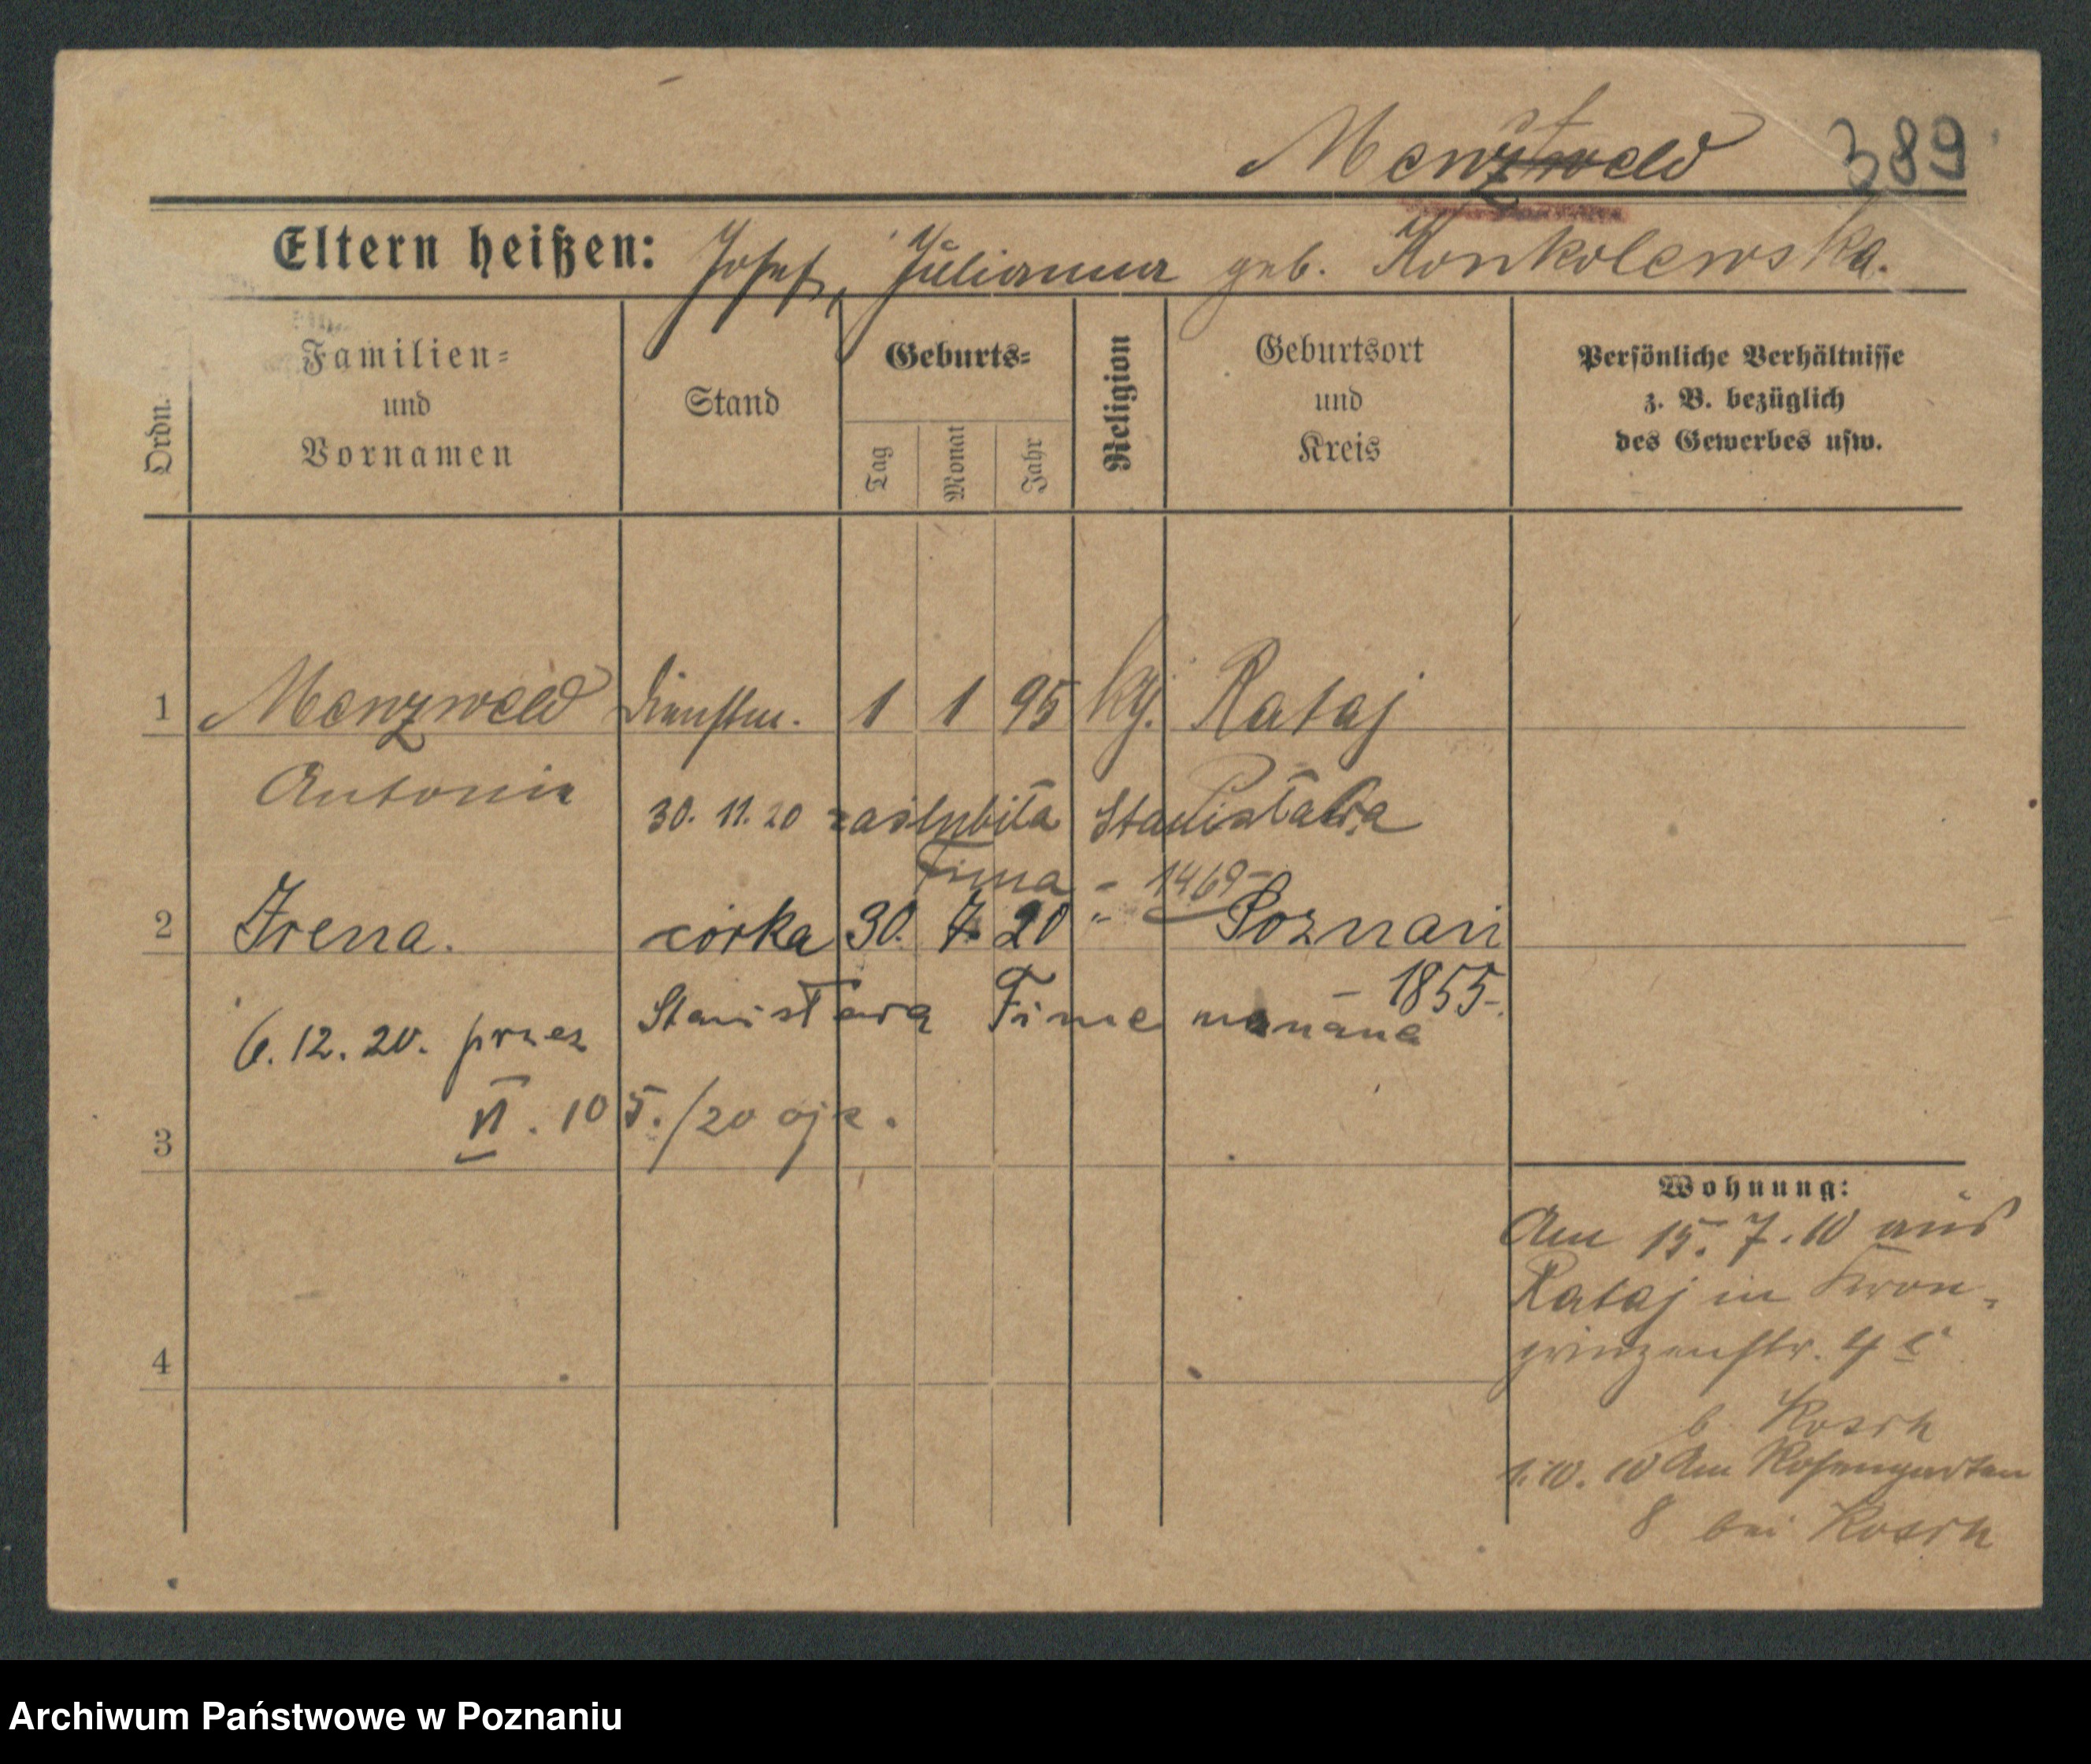 Menzweld 389
Eltern heißen: Josef, Julianna geb. Konkolewska.
Ordn. Familien= und Vornamen Stand Geburts= Tag Monat Jahr Religion Geburtsort und Kreis Persönliche Verhältnisse z. B. bezüglich des Gewerbes usw.
1 Menzweld Dienstm. 1 1 95 kgl. Rataj
Antonie
30. 11. 20 zaślubiła Stanisława
Fima - 1469-
2 Irena. córka 30. 7. 20 " Poznań
- 1855-
6. 12. 20. przez Stanisława Fime uznana
VI. 105./20 ojc.
3
4
Wohnung:
Am 15. 7. 10 aus
Rataj in Kron-
prinzenstr. 4 c
b. Kosch
1. 10. 10 Am Rosengarten
8 bei Kosch
Archiwum Państwowe w Poznaniu